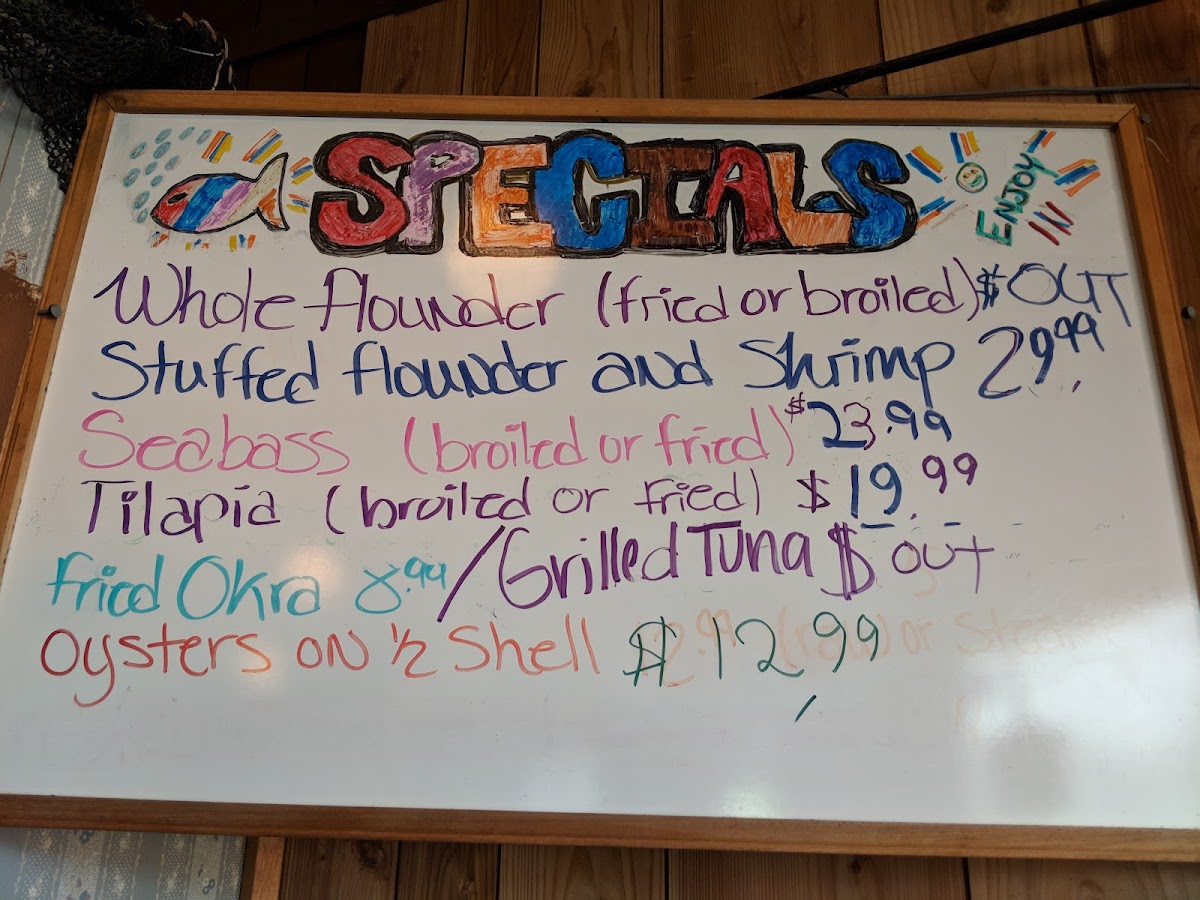 SPECIALS
ENJOY
IN
Whole flounder (fried or broiled) $ OUT
Stuffed flounder and Shrimp 29.99
Seabass (broiled or fried) $23.99
Tilapia (broiled or fried) $19.99
fried Okra 8.99 / Grilled Tuna $ out
Oysters on 1/2 Shell $12.99